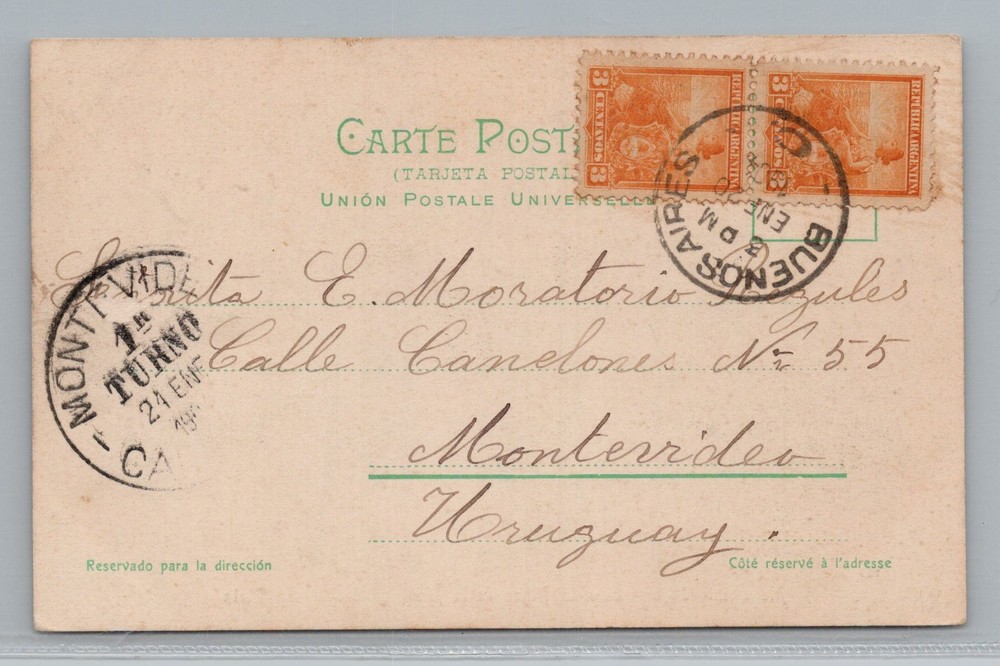 CARTE POST
(TARJETA POSTAL
UNIÓN POSTALE UNIVERSELLE
REPUBLICA ARGENTINA
3 CENTAVOS 3
REPUBLICA ARGENTINA
3 CENTAVOS 3
BUENOS AIRES
ENE
3 PM
MONTEVIDE
1R
TURNO
21 ENE
19
CA
E. Moratorio
Calle Canelones Nr 55
Montevideo
Uruguay.
Reservado para la dirección
Côté réservé à l'adresse